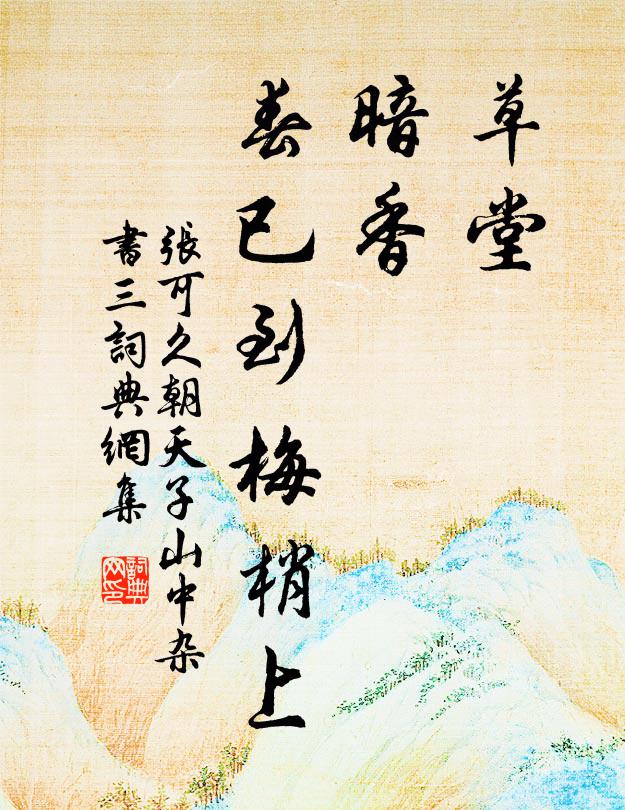 草堂
暗香
春已到梅梢上
張可久朝天子山中杂
書三詞典網集
詞典
网印